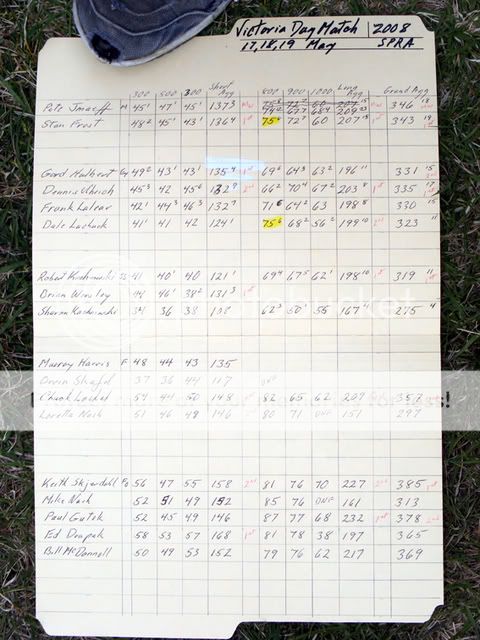 Victoria Day Match 2008
17, 18, 19 May SPRA
300 500 300 Short Agg 800 900 1000 Long Agg Grand Agg
Pete M 45¹ 47¹ 45¹ 137³ 346 18
Stan Frost 48² 45¹ 43¹ 136⁴ 75⁶ 72¹ 60 207 343
Gord Hulbert 49² 43¹ 43¹ 135⁴ 1st 69² 64³ 63² 196¹¹ 331 15
Dennis Ulrich 45³ 42 45⁶ 132⁹ 2nd 66² 70⁴ 67² 203⁸ 1st 335 17
Frank 42¹ 44³ 46³ 132⁷ 71⁶ 64² 63 198⁸ 330 15
Dale 41¹ 41 42 124¹ 75⁶ 68² 56² 199¹⁰ 2nd 323 11
Robert 41 40¹ 40 121¹ 69⁴ 67⁵ 62¹ 198¹⁰ 1st 319 11
Brian Winsley 44 46¹ 38² 131³
Sharon 34 36 38 108 62³ 50¹ 55 167⁴ 275 4
Murray Harris F 48 44 43 135
37 36 44 117 DNF
Chuck 54 44 50 148 82 65 62 209 357
Loretta Nash 51 46 48 146 80 71 DNF 151 297
Keith Skjerdahl FO 56 47 55 158 2nd 81 76 70 227 2nd 385 1st
Mike Nash 52 51 49 152 85 76 DNF 161 313
Paul 52 45 49 146 87 77 68 232 1st 378 2nd
Ed Drapak 58 53 57 168 1st 81 78 38 197 365
Bill McDonnell 50 49 53 152 79 76 62 217 369